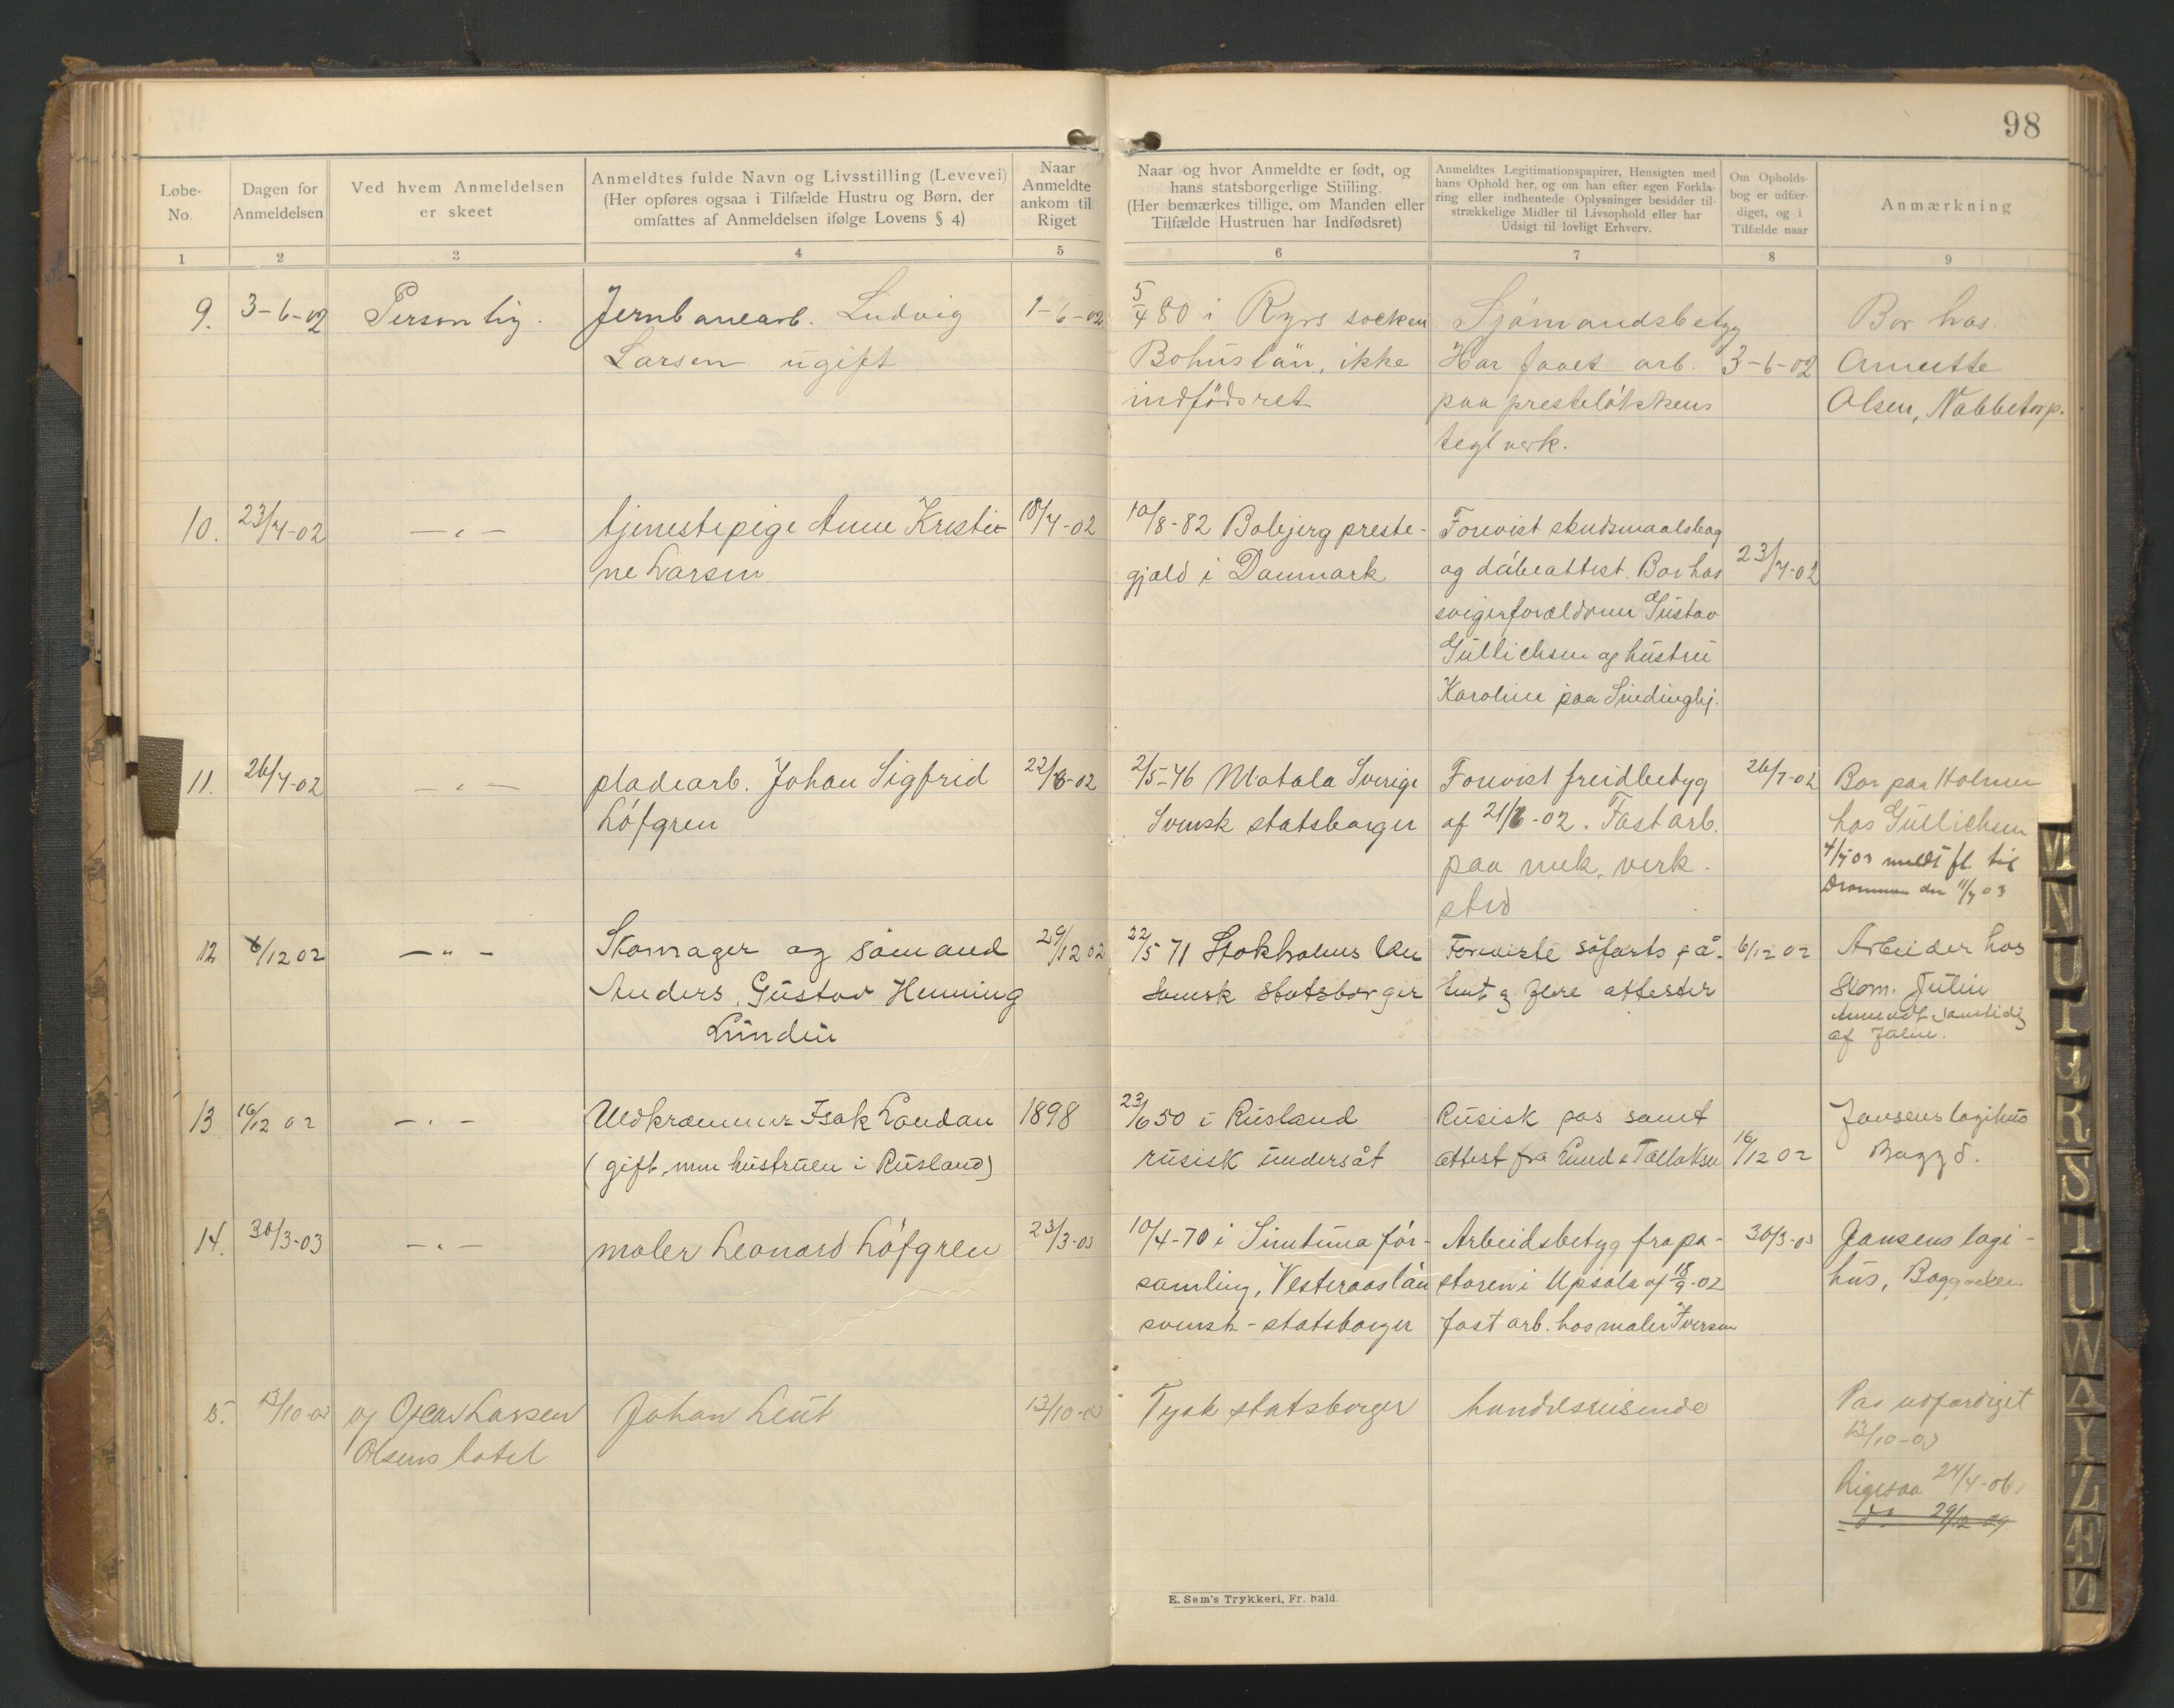 98
Løbe-No.
Dagen for Anmeldelsen
Ved hvem Anmeldelsen er skeet
Anmeldtes fulde Navn og Livsstilling (Levevei)
(Her opføres ogsaa i Tilfælde Hustru og Børn, der
omfattes af Anmeldelsen ifølge Lovens § 4)
Naar Anmeldte ankom til Riget
Naar og hvor Anmeldte er født, og
hans statsborgerlige Stilling
(Her bemærkes tillige, om Manden eller
Tilfælde Hustruen har Indfødsret)
Anmeldtes Legitimationspapirer, Hensigten med
hans Ophold her, og om han efter egen Forkla-
ring eller indhentede Oplysninger besidder til-
strækkelige Midler til Livsophold eller har
Udsigt til lovligt Erhverv.
Om Opholds-
bog er udfær-
diget, og i
Tilfælde naar
Anmærkning
1 2 3 4 5 6 7 8 9
9. 3-6-02 Personlig. Jernbanearb. Ludvig 1-6-02 5/4 80 i Ryrs socken Sjömandsbetyg Bor hos
Larsen ugift Bohuslän, ikke Har faaet arb. 3-6-02 Annette
indfödsret paa presteløkkens Olsen, Nabbetorp.
teglverk.
10. 23/7-02 — „ — tjenestepige Anne Kristi- 18/7-02 10/8-82 Bobjerg preste- Forevist skudsmaalsbog
ne Larsen gjæld i Danmark og dåbeattest. Bor hos 23/7-02
svigerforældrene Gustav
Gullichsen og hustru
Karoline paa
11. 26/7-02 — „ — pladearb. Johan Sigfrid 22/6-02 2/5-76 Motala Sverige Forevist freidbetyg 26/7-02 Bor paa Holmen
Löfgren Svensk statsborger af 21/6-02. Fast arb. hos Gullichsen
paa mek. verk- 4/7 03 meldt fl. til
sted Drammen den 11/7 03
12 6/12 02 — „ — Skomager og sömand 29/12 02 22/5 71 Stokholms län Foreviste söfarts på- 6/12 02 Arbeider hos
Anders Gustav Henning Svensk Statsborger tent og flere attester Skom. Julin
Lundin Anmeldt samtidig
af Julin.
13 16/12 02 — „ — Uldkræmmer Isak Landau 1898 23/6 50 i Rusland Rusisk pas samt Jansens logihus
(gift, men hustruen i Rusland) rusisk undersåt attest fra Lund & Tallaksen 16/12 02
14. 30/3-03 — „ — maler Leonard Löfgren 23/3-03 10/4-70 i Simtuna för- Arbeidsbetyg fra pa- 30/3-03 Jansens logi-
samling, Vesteraaslän storen i Upsala af 18/9-02 hus, Baggaaker
svensk-statsborger fast arb. hos maler Iversen
15. 13/10-03 af Oscar Larsen Johan Leut 13/10-03 Tysk statsborger handelsreisende Pas udfærdiget
Olsens hotel 13/10-03
Ligesaa 24/4-06.
29/12-09
E. Sem's Trykkeri, Fr. hald.
M
N
O
P
Q
R
S
T
U
W
A
Y
Z
Æ
Ø